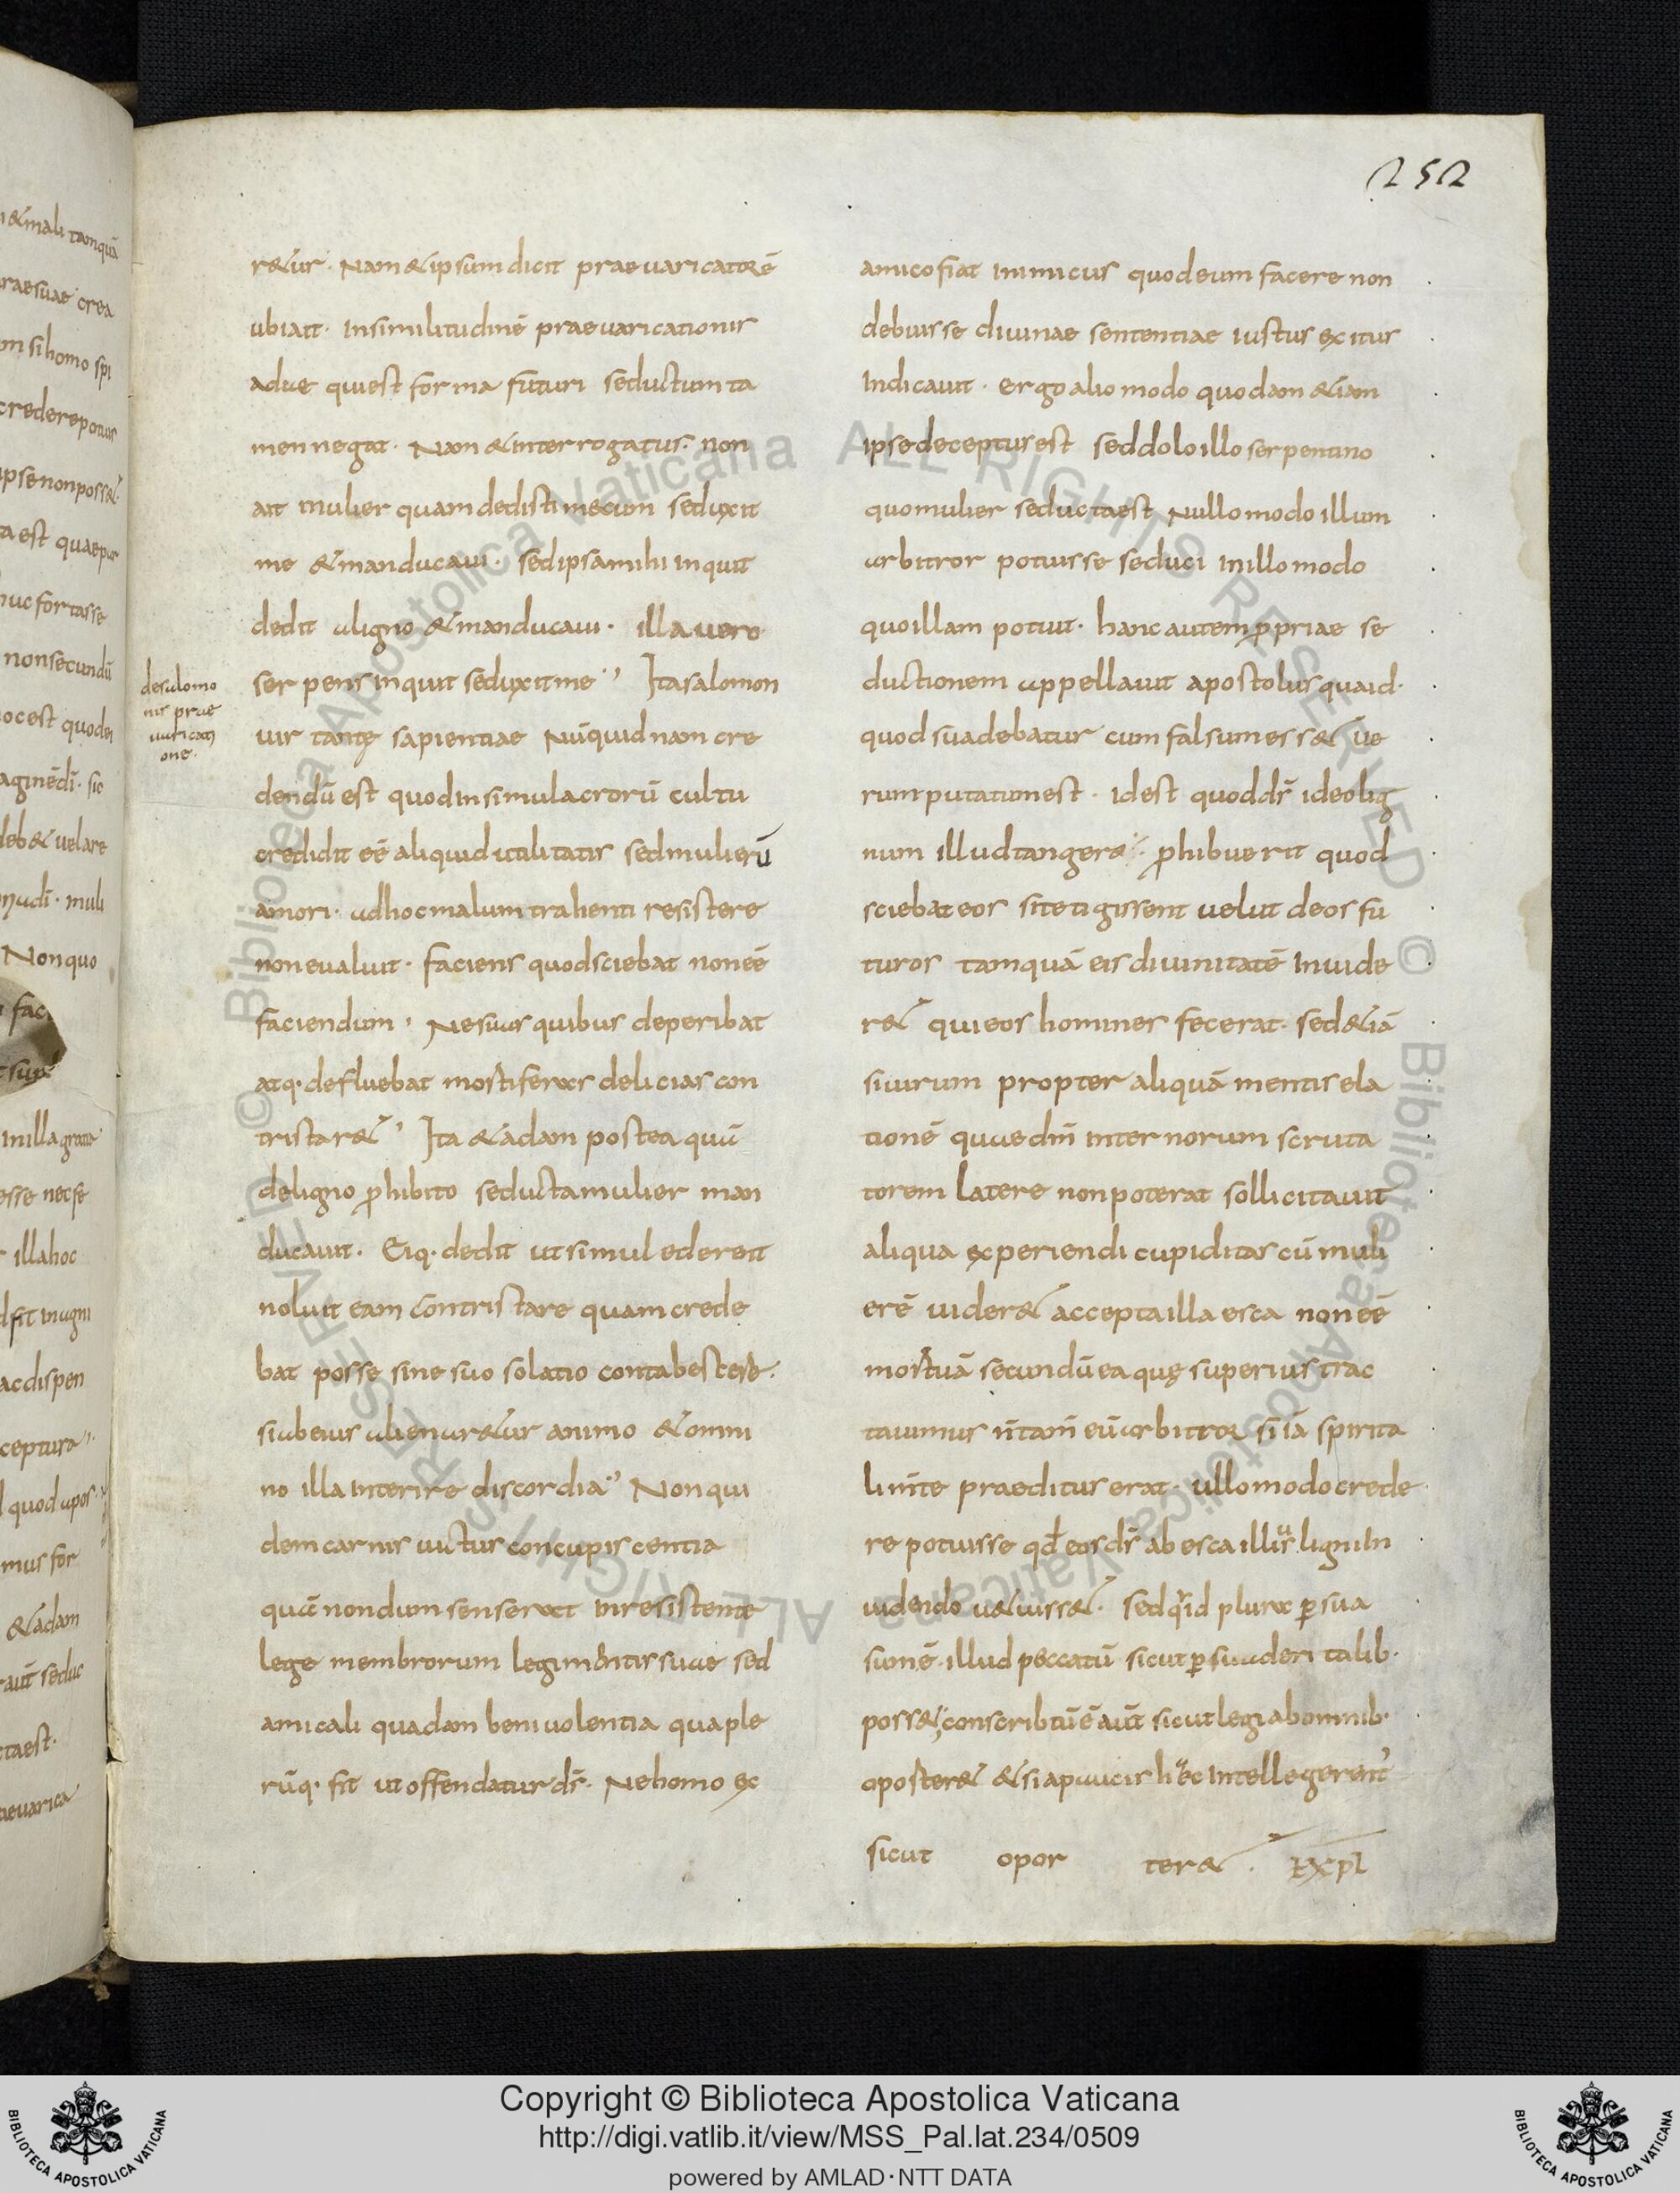 252
r&ur. Nam & ipsum dicit praevaricatorē
ubi ait. In similitudinē praevaricationis
adae qui est forma futuri seductum ta
men negat. Nam & interrogatus. non
ait mulier quam dedisti mecum seduxit
me & manducaui. sed ipsa mihi inquit
dedit a ligno & manducaui. illa uero
serpens inquit seduxit me Ita salomon
uir tantę sapientiae Nūquidnam cre
dendū est quod in simulacrorū cultu
credidit eē aliquid utilitatis sed mulierū
amori. ad hoc malum trahenti resistere
non eualuit. faciens quod sciebat non eē
faciendum, Ne suas quibus deperibat
atq. defluebat mortiferas delicias con
tristar& , Ita & adam postea quā
de ligno phibito seducta mulier man
ducauit. Eiq. dedit ut simul ederent
noluit eam contristare quam crede
bat posse sine suo solatio contabescere.
si ab eius alienar&ur animo & omni
no illa interire discordia Non qui
dem carnis uictus concupiscentia
quā nondum senserat in resistente
lege membrorum legi mentis suae sed
amicali quadam beniuolentia qua ple
rūq. fit ut offendatur ds̄. Ne homo ex
desalomo
nis prae
uaricati
one.
amico fiat inimicus quod eum facere non
debuisse diuinae sententiae iustus exitus
Indicauit. ergo alio modo quodam &iam
ipse deceptus est sed dolo illo serpentino
quo mulier seducta est Nullo modo illum
arbitror potuisse seduci in illo modo
quo illam potuit. hanc autem ppriae se
ductionem appellauit apostolus qua id.
quod suadebatur cum falsum ess& ue
rum putatum est. id est quod ds̄ ideo lig
num illud tanger& phibuerit quod
sciebat eos si tetigissent uelut deos fu
turos tamquā eis diuinitatē inuide
r& qui eos homines fecerat. sed &iā
si uirum propter aliquā mentis ela
tionē quae dm̄ internorum scruta
torem latere non poterat sollicitauit
aliqua experiendi cupiditas cū muli
erē uider& accepta illa esca non eē
mortuā secundū ea quę superius trac
tauimus n̄ tam̄ eū arbitror si iā spirita
li m̄te praeditus erat. ullo modo crede
re potuisse qd̄ eos ds̄ ab esca illius ligni In
uidendo u&uiss&. sed quid plura p sua
sionē. illud peccatū sicut p suaderi talib.
poss&; conscribtū ē aūt sicut legi ab omnib.
oporter& & si a paucis hęc Intellegerent
sicut opor ter&. Expl
Copyright © Biblioteca Apostolica Vaticana
http://digi.vatlib.it/view/MSS_Pal.lat.234/0509
powered by AMLAD·NTT DATA
BIBLIOTECA APOSTOLICA VATICANA
BIBLIOTECA APOSTOLICA VATICANA